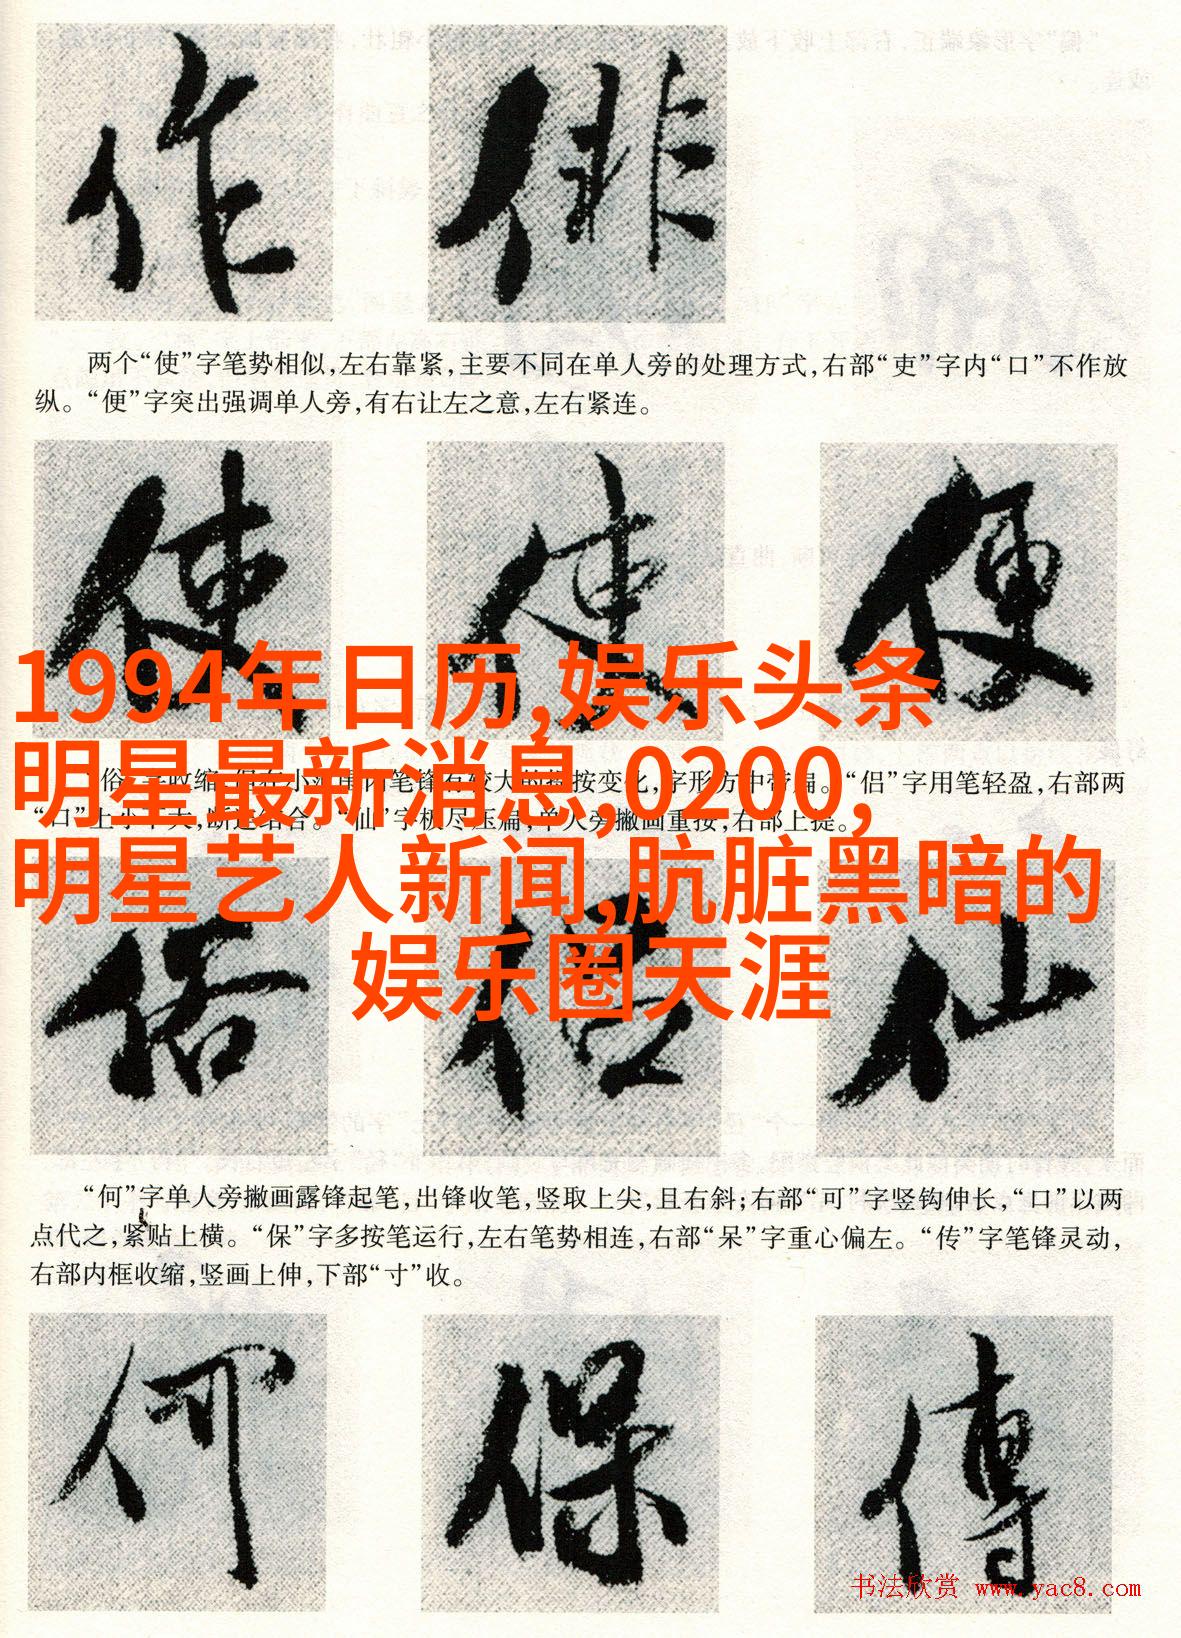 作 俳
两个“使”字笔势相似,左右靠紧,主要不同在单人旁的处理方式,右部“吏”字内“口”不作放
纵。“便”字突出强调单人旁,有右让左之意,左右紧连。
使 使 便
1994年日历,娱乐头条
明星最新消息,0200,
“俗”字收缩,但在小范围内笔锋有较大的提按变化,字形方中带扁。“侣”字用笔轻盈,右部两
“口”上小下大,断连结合。“仙”字极尽压扁,单人旁撇画重按,右部上提。
明星艺人新闻,肮脏黑暗的
娱乐圈天涯
俗 侣 仙
“何”字单人旁撇画露锋起笔,出锋收笔,竖取上尖,且右斜;右部“可”字竖钩伸长,“口”以两
点代之,紧贴上横。“保”字多按笔运行,左右笔势相连,右部“呆”字重心偏左。“传”字笔锋灵动,
右部内框收缩,竖画上伸,下部“寸”收。
何 保 傳
书法欣赏 www.yac8.com